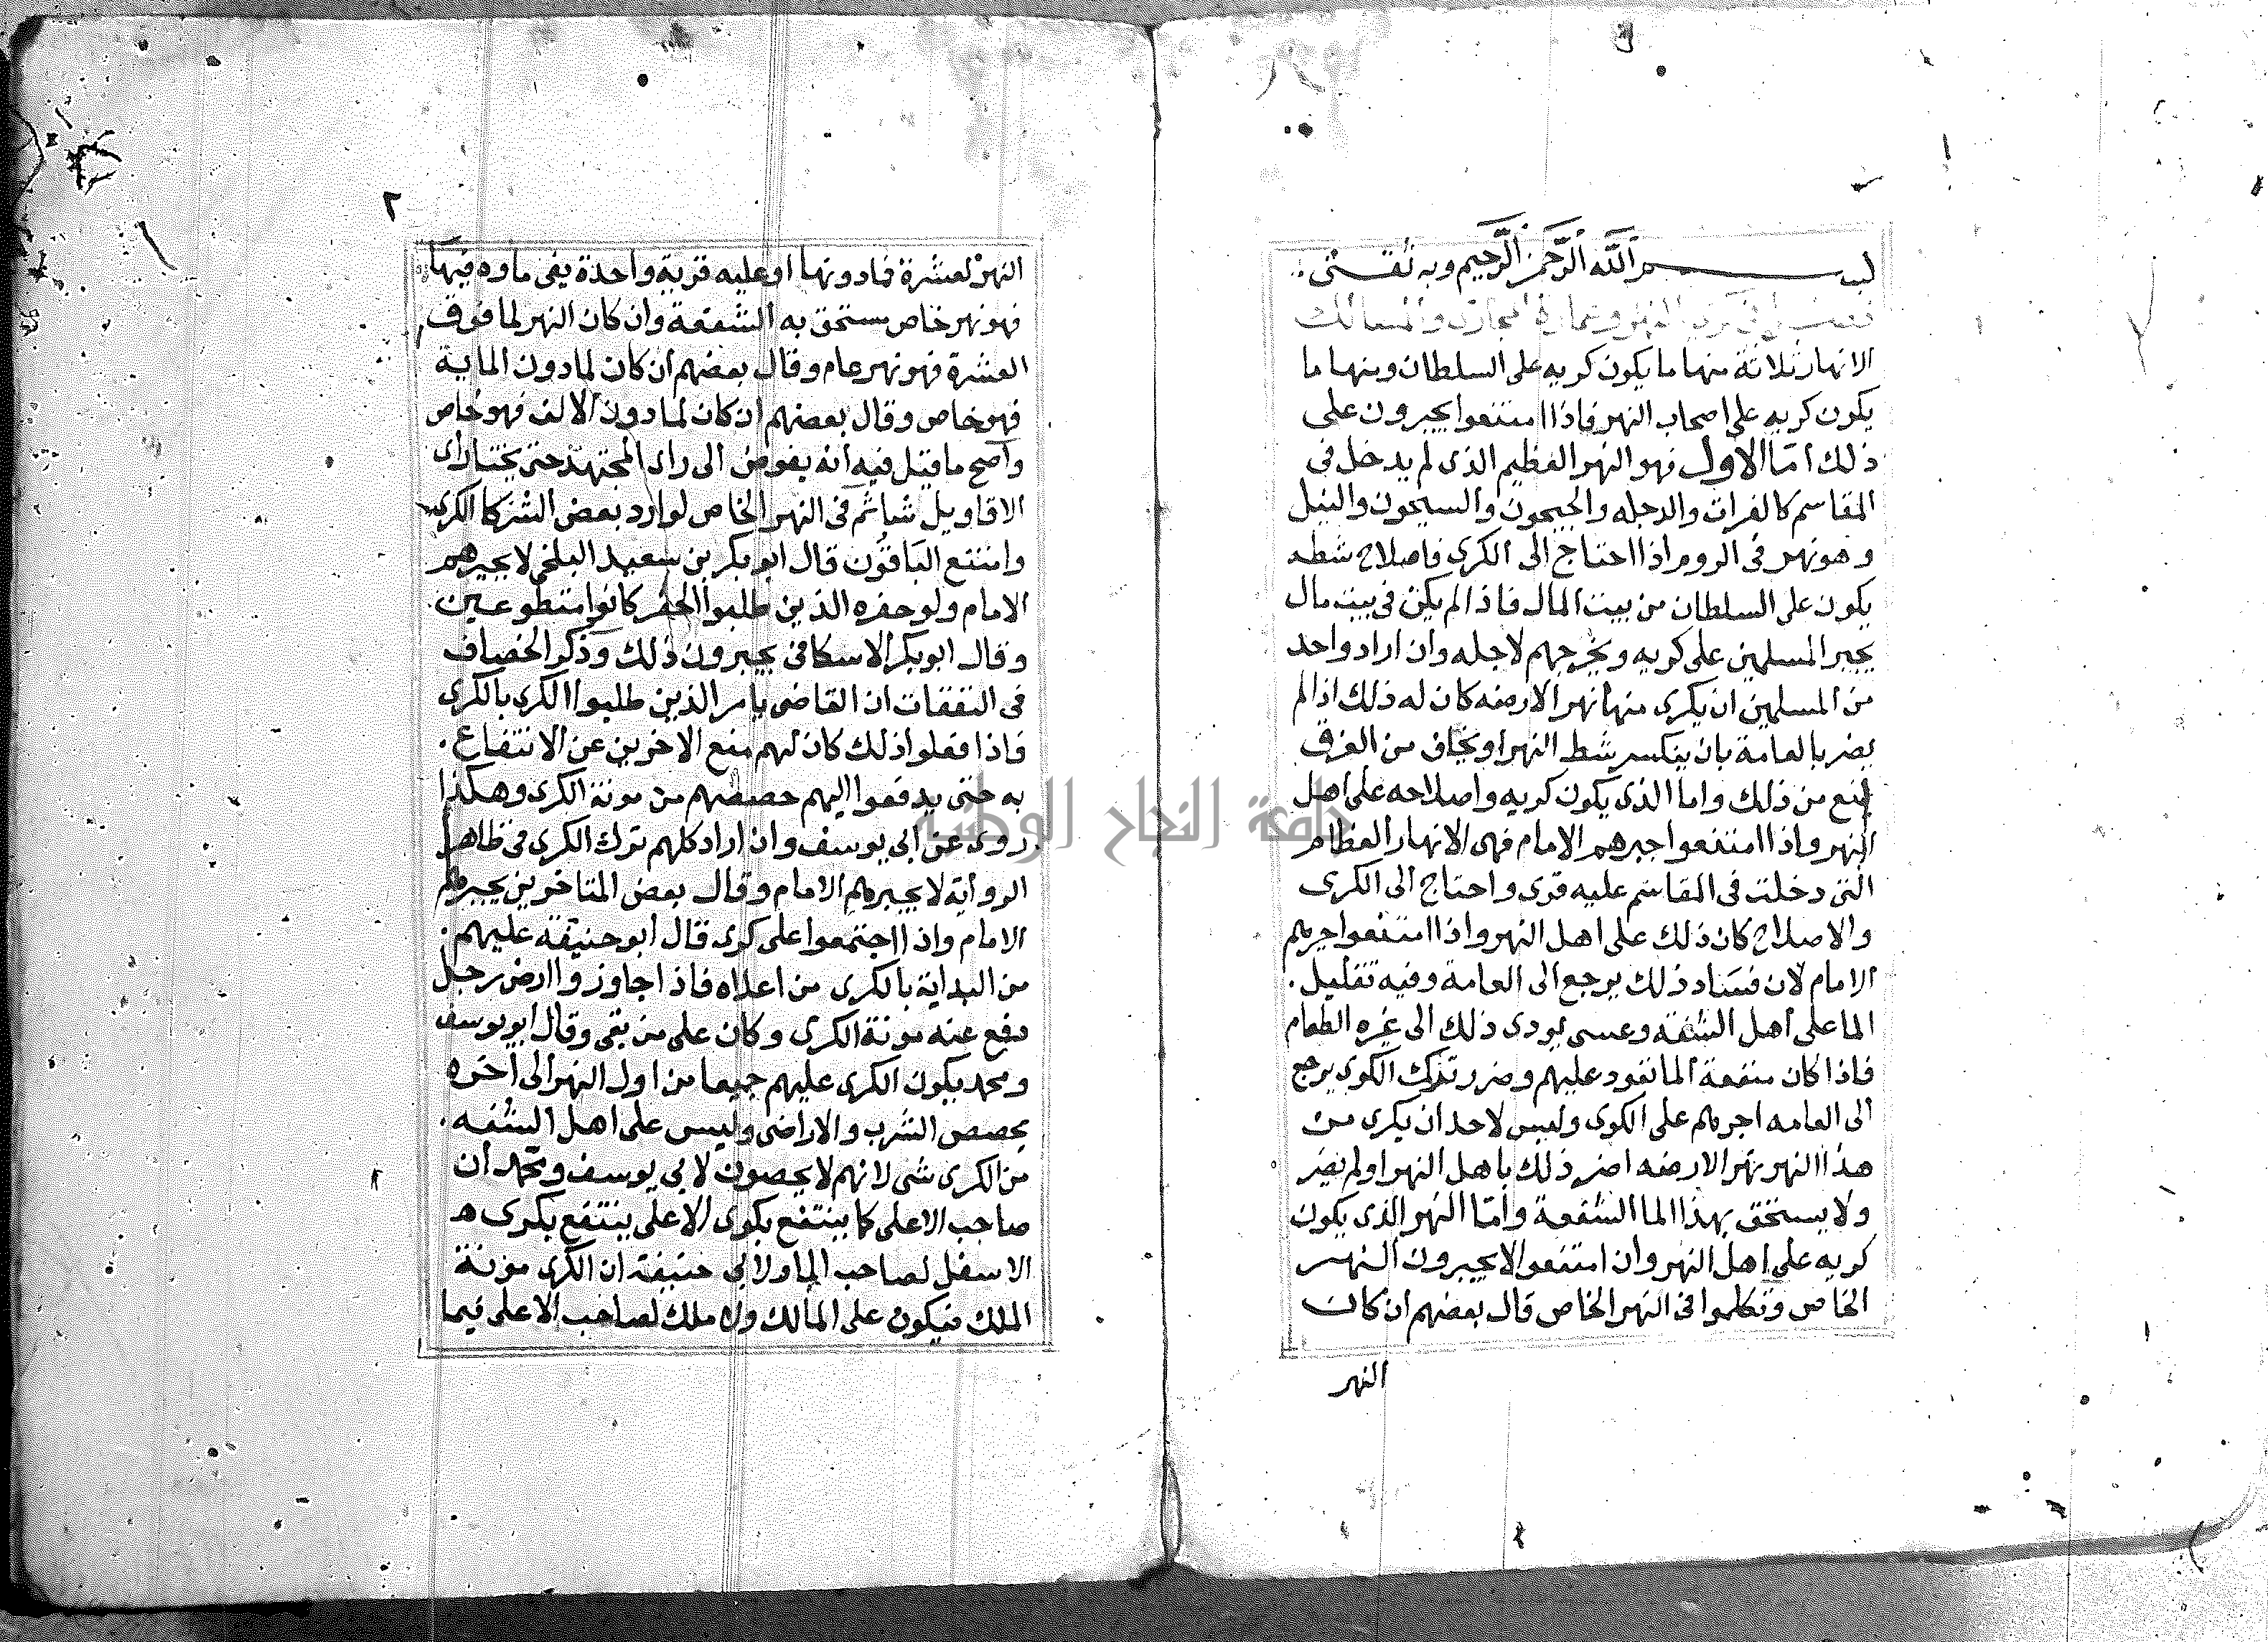 بسم الله الرحمن الرحيم وبه ثقتى
فى كرى الانهار والمسالك
الانهار ثلاثة منها ما يكون كريه على السلطان ومنها ما
يكون كريه على اصحاب النهر فاذا امتنعوا يجبرون على
ذلك امّا الاول فهو النهر العظيم الذى لم يدخل فى
المقاسم كالفرات والدجله والجيحون والسيحون والنيل
وهو نهر فى الروم اذا احتاج الى الكرى فاصلاح شطه
يكون على السلطان من بيت المال فاذا لم يكن فى بيت مال
يجبر المسلمين على كريه ويخرجهم لاجله وان اراد واحد
من المسلمين ان يكرى منها نهر الارضه كان له ذلك اذا لم
يضر بالعامة بان ينكسر شط النهر او يخاف من الغرق
يمنع من ذلك واما الذى يكون كريه واصلاحه على اهل
النهر واذا امتنعوا جبرهم الامام فهى الانهار العظام
التى دخلت فى المقاسم عليه قرى واحتاج الى الكرى
والاصلاح كان ذلك على اهل النهر واذا امتنعوا اجبرهم
الامام لان فساد ذلك يرجع الى العامة وفيه تقليل
الما على اهل الشفة وعسى يودى ذلك الى غره الطعام
فاذا كان منفعة الما تعود عليهم وضرر ترك الكرى يرجع
الى العامه اجبرهم على الكرى وليس لاحد ان يكرى من
هذا النهر نهر الارضه اضر ذلك باهل النهر او لم يضر
ولا يستحق بهذا الما الشفعة وامّا النهر الذى يكون
كريه على اهل النهر وان امتنعوا لا يجبرون النهر
الخاص وتكلموا فى النهر الخاص قال بعضهم ان كان
النهر
٢
النهر لعشرة فما دونها او عليه قرية واحدة يفى ماوه فيها
فهو نهر خاص يستحق به الشفعة وان كان النهر لما فوق
العشرة فهو نهر عام وقال بعضهم ان كان لما دون الماية
فهو خاص وقال بعضهم ان كان لما دون الالف فهو خاص
واصح ما قيل فيه انه يفوض الى راى المجتهد حتى يختار اى
الاقاويل شا ثم فى النهر الخاص لو اراد بعض الشركا الكرى
وامتنع الباقون قال ابو بكر بن سعيد البلخى لا يجبرهم
الامام ولو حفره الذين طلبوا الحفر كانوا متطوعين
وقال ابو بكر الاسكافى يجبرون ذلك وذكر الخصاف
فى النفقات ان القاضى يامر الذين طلبوا الكرى بالكرى
فاذا فعلوا ذلك كان لهم منع الاخرين عن الانتفاع
به حتى يدفعوا اليهم حصصهم من مونة الكرى وهكذا
روى عن ابى يوسف وان اراد كلهم ترك الكرى فى ظاهر
الرواية لا يجبرهم الامام وقال بعض المتاخرين يجبرهم
الامام واذا اجتمعوا على كرى قال ابو حنيفة عليهم
من البداية بالكرى من اعلاه فاذا جاوزوا ارض رجل
دفع عنه مونة الكرى وكان على من بقى وقال ابو يوسف
ومحمد يكون الكرى عليهم جميعا من اول النهر الى اخره
بحصص الشرب والاراضى وليس على اهل الشفه
من الكرى شى لانهم لا يحصون لابى يوسف ومحمد ان
صاحب الاعلى كما ينتفع بكرى الاعلى ينتفع بكرى
الاسفل لصاحب الما ولابى حنيفة ان الكرى مونة
الملك فيكون على المالك ولا ملك لصاحب الاعلى فيما
جامعة النجاح الوطنية